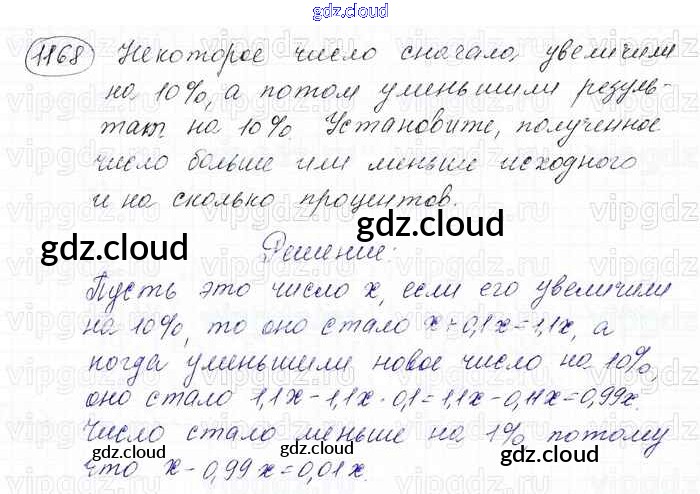 gdz.cloud
1168 Некоторое число сначала увеличили
на 10%, а потом уменьшили резуль-
тат на 10%. Установите, полученное
число больше или меньше исходного
и на сколько процентов.
gdz.cloud
gdz.cloud
Решение:
Пусть это число x, если его увеличили
на 10%, то оно стало x+0,1x=1,1x, а
когда уменьшили новое число на 10%,
оно стало 1,1x-1,1x·0,1=1,1x-0,11x=0,99x.
Число стало меньше на 1% потому
что x-0,99x=0,01x.
gdz.cloud
gdz.cloud